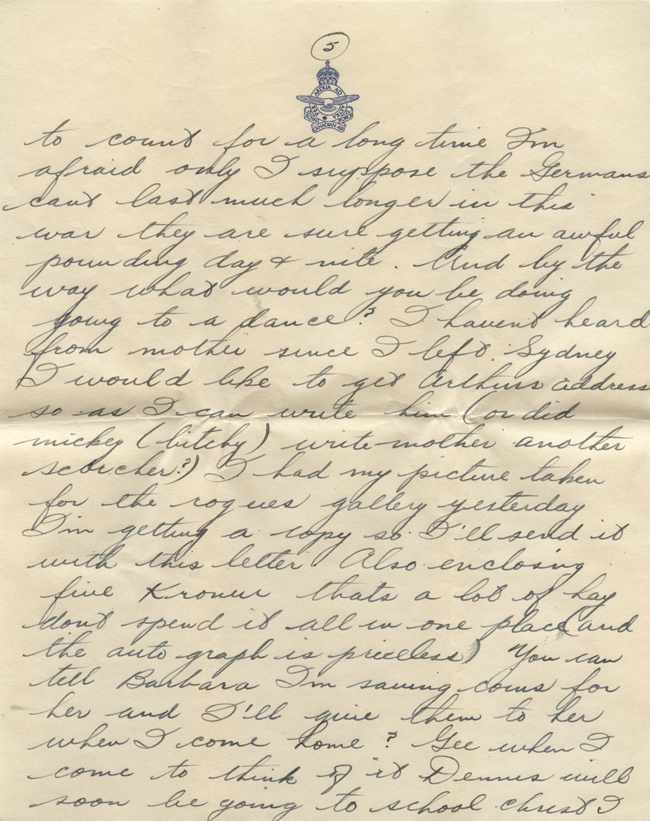 5
PER ARDUA AD ASTRA
to count for a long time I'm
afraid only I suppose the Germans
cant last much longer in this
war they are sure getting an awful
pounding day & nite. And by the
way what would you be doing
going to a dance? I havent heard
from mother since I left Sydney
I would like to get Arthurs address
so as I can write him (or did
mickey (bitchy) write mother another
scorcher?) I had my picture taken
for the rogues gallery yesterday
I'm getting a copy so I'll send it
with this letter Also enclosing
five Kronur thats a lot of hay
dont spend it all in one place (and
the auto graph is priceless) You can
tell Barbara I'm saving coins for
her and I'll give them to her
when I come home? Gee when I
come to think of it Dennis will
soon be going to school christ I